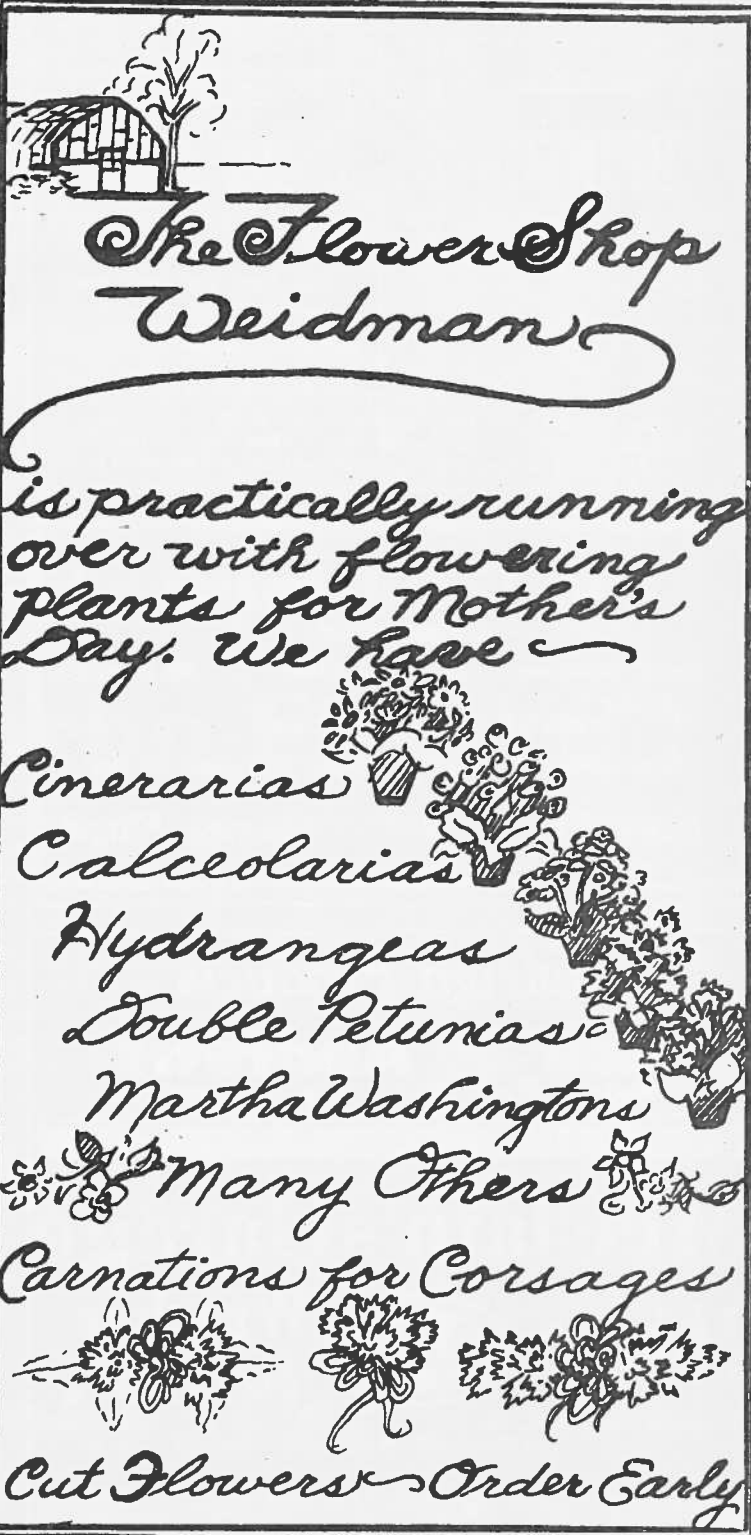 The Flower Shop
Weidman
is practically running
over with flowering
plants for Mother's
Day. We have
Cinerarias
Calceolarias
Hydrangeas
Double Petunias
Martha Washingtons
Many Others
Carnations for Corsages
Cut Flowers Order Early